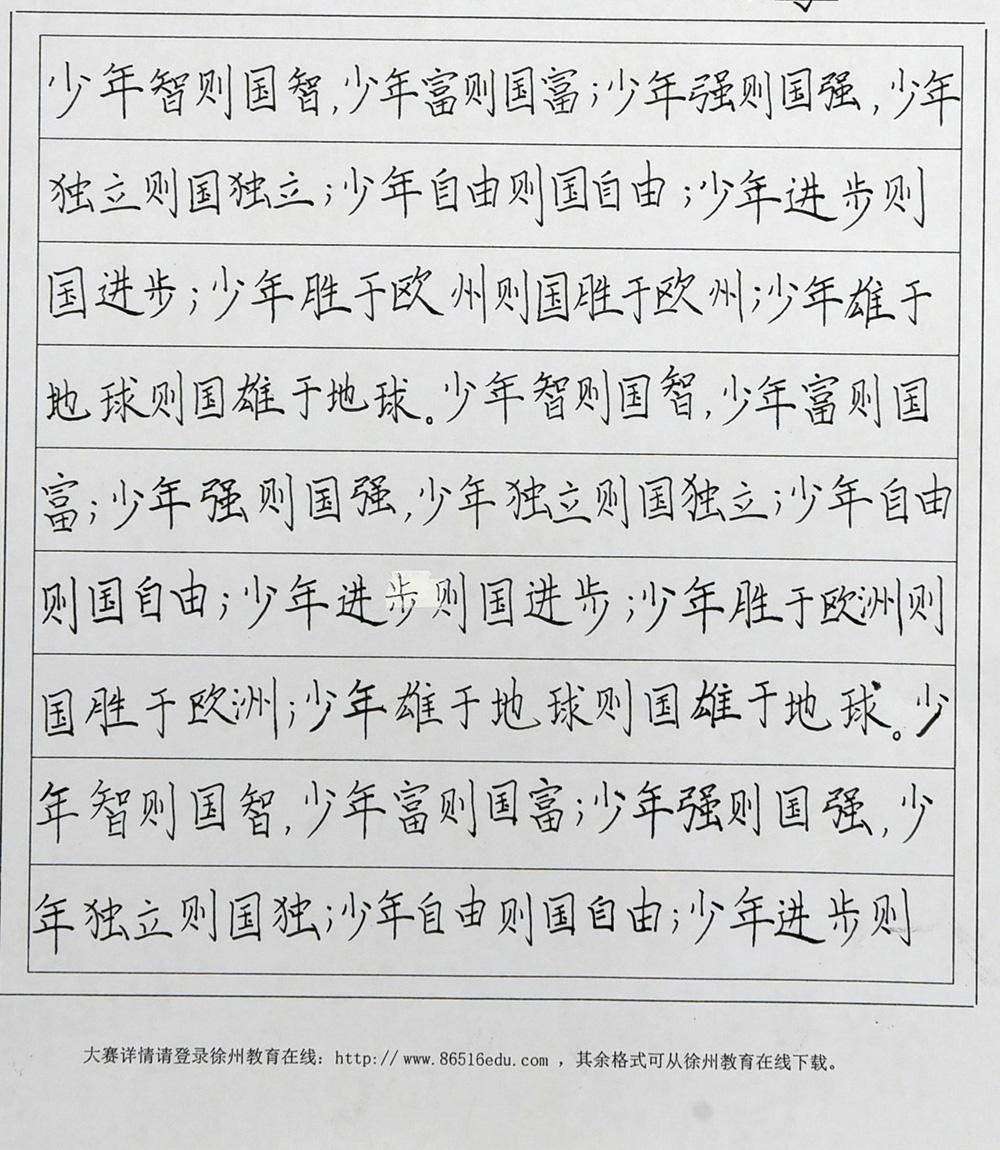 少年智则国智,少年富则国富;少年强则国强,少年
独立则国独立;少年自由则国自由;少年进步则
国进步;少年胜于欧州则国胜于欧州;少年雄于
地球则国雄于地球。少年智则国智,少年富则国
富;少年强则国强,少年独立则国独立;少年自由
则国自由;少年进步则国进步;少年胜于欧洲则
国胜于欧洲;少年雄于地球则国雄于地球。少
年智则国智,少年富则国富;少年强则国强,少
年独立则国独;少年自由则国自由;少年进步则
大赛详情请登录徐州教育在线：http://www.86516edu.com ，其余格式可从徐州教育在线下载。